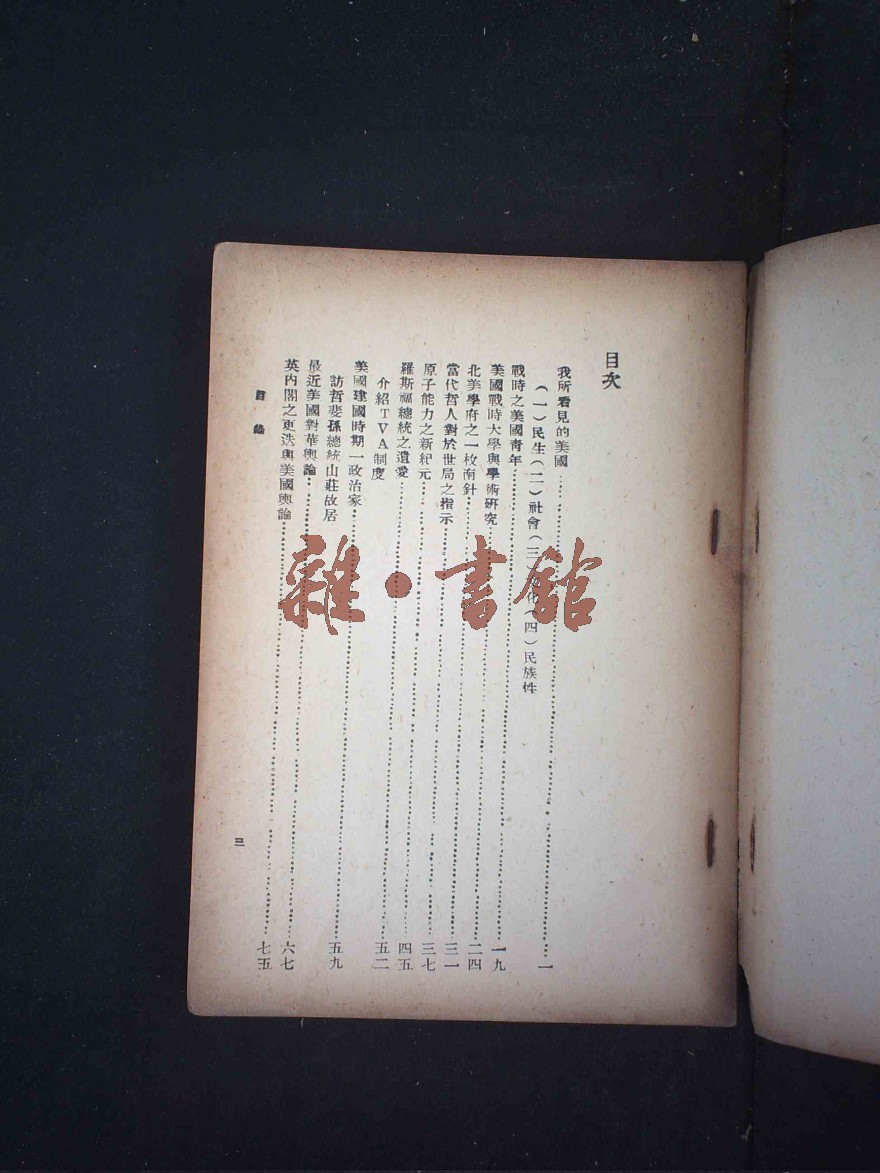 目次
我所看見的美國……一
（一）民生（二）社會（三）化（四）民族性
戰時之美國青年……一九
美國戰時大學與學術研究……二四
北美學府之一枚南針……三一
當代哲人對於世局之指示……三七
原子能力之新紀元……四五
羅斯福總統之遺愛……五二
介紹TVA制度
美國建國時期一政治家……五九
訪哲斐孫總統山莊故居
最近美國對華輿論……六七
英內閣之更迭與美國輿論……七五
目錄
三
雜·書館